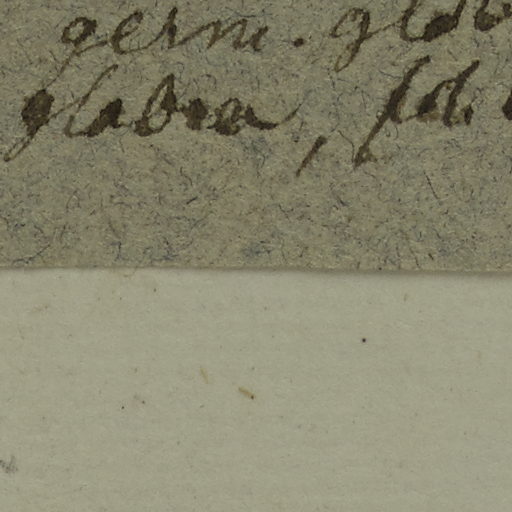 germ. glab
glabra, fol.